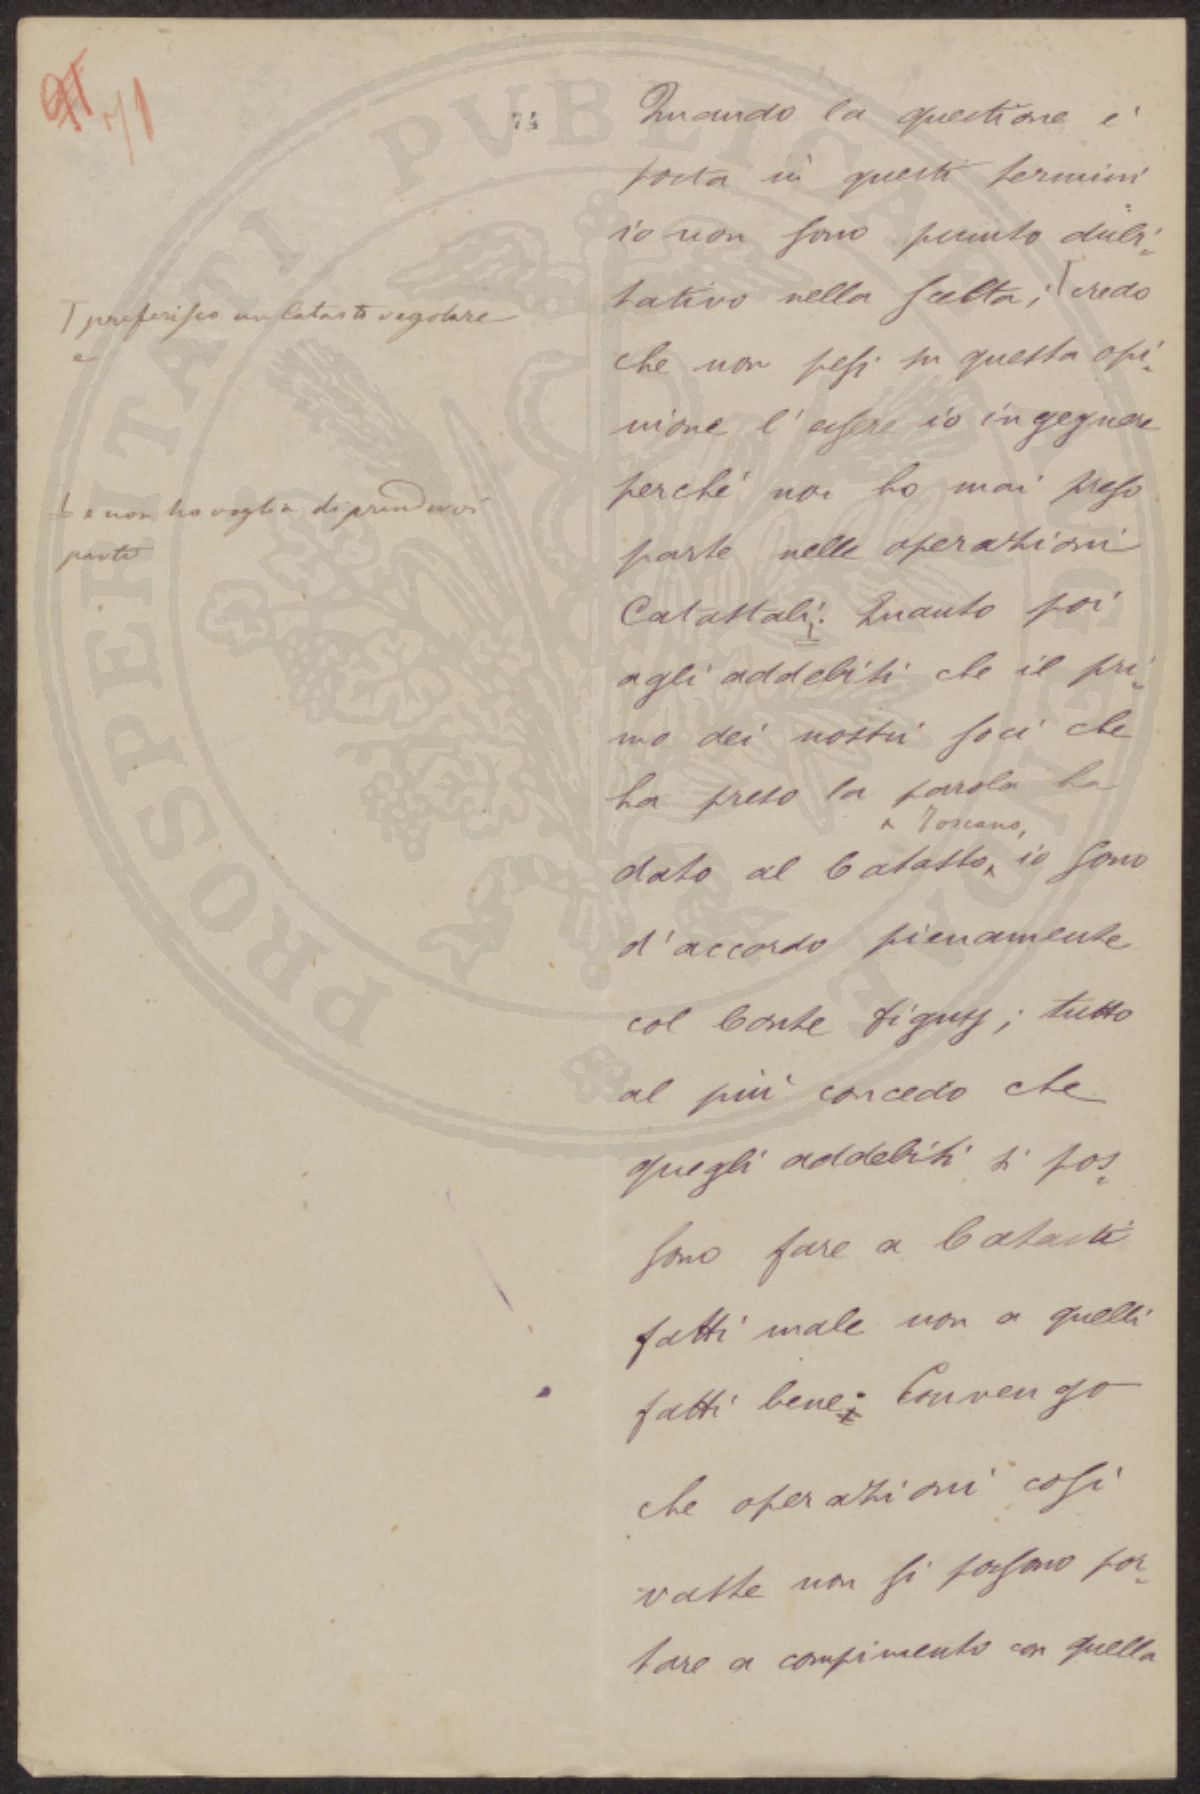 71
74
PROSPERITATI PVBLICAE AVGENDAE
Quando la questione è
posta in questi termini
io non sono punto dubi=
tativo nella scelta; T credo
che non pesi su questa opi=
nione l'essere io ingegnere
perché non ho mai preso
parte nelle operazioni
Catastali. Quanto poi
agli addebiti che il pri=
mo dei nostri soci che
ha preso la parola ha
Toscano,
dato al Catasto, io sono
d'accordo pienamente
col Conte Digny; tutto
al più concedo che
quegli addebiti si pos=
sono fare a Catasti
fatti male non a quelli
fatti bene; Convengo
che operazioni così
vaste non si possono por=
tare a compimento con quella
T preferisco un Catasto regolare
e
e non ho voglia di prendervi
parte